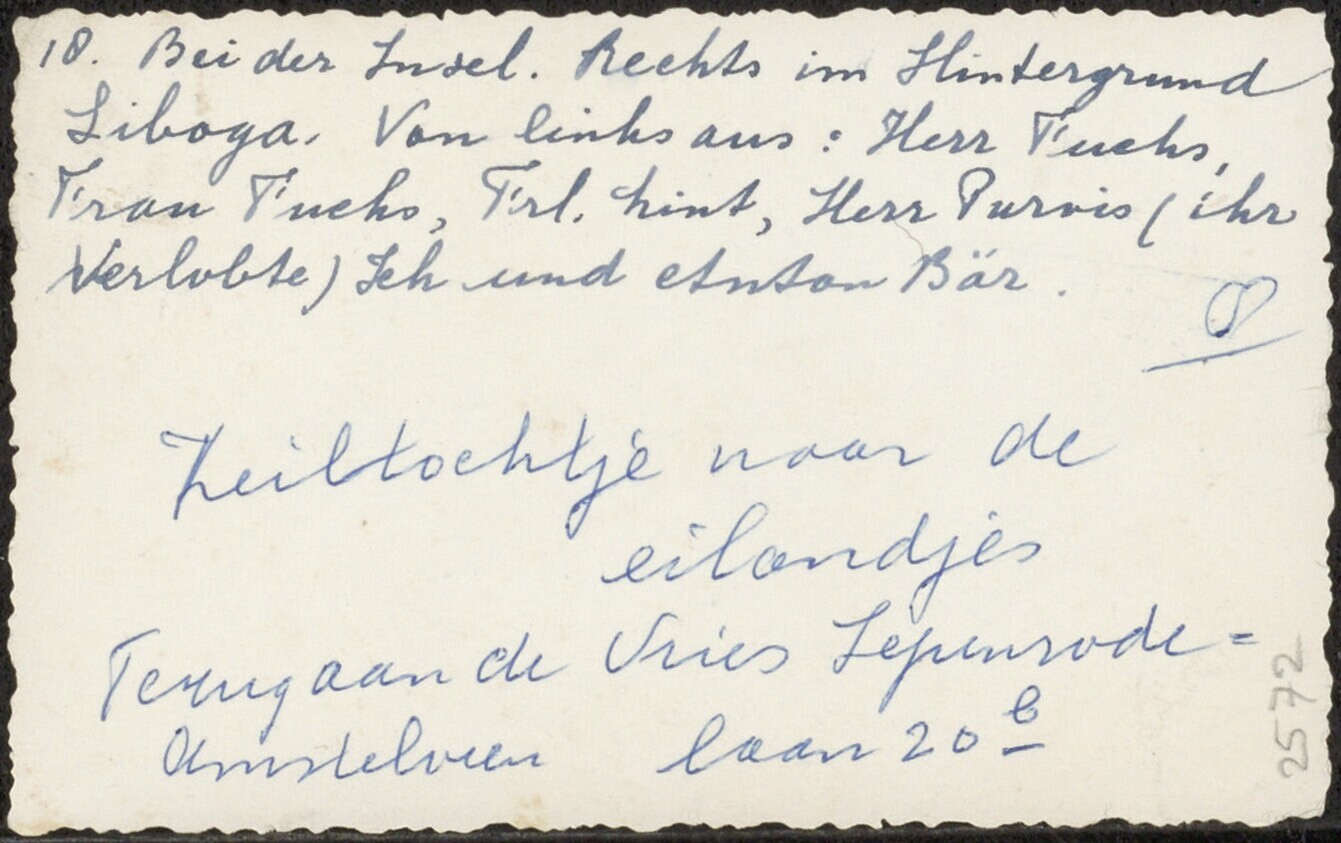 18. Bei der Insel. Rechts im Hintergrund
Siboga. Von links aus: Herr Fuchs,
Frau Fuchs, Frl. Kint, Herr Purvis (ihr
Verlobte) Ich und Anton Bär.
8
Zeiltochtje naar de
eilandjes
Terug aan de Vries Iepenrode=
Amstelveen laan 20 b
2572